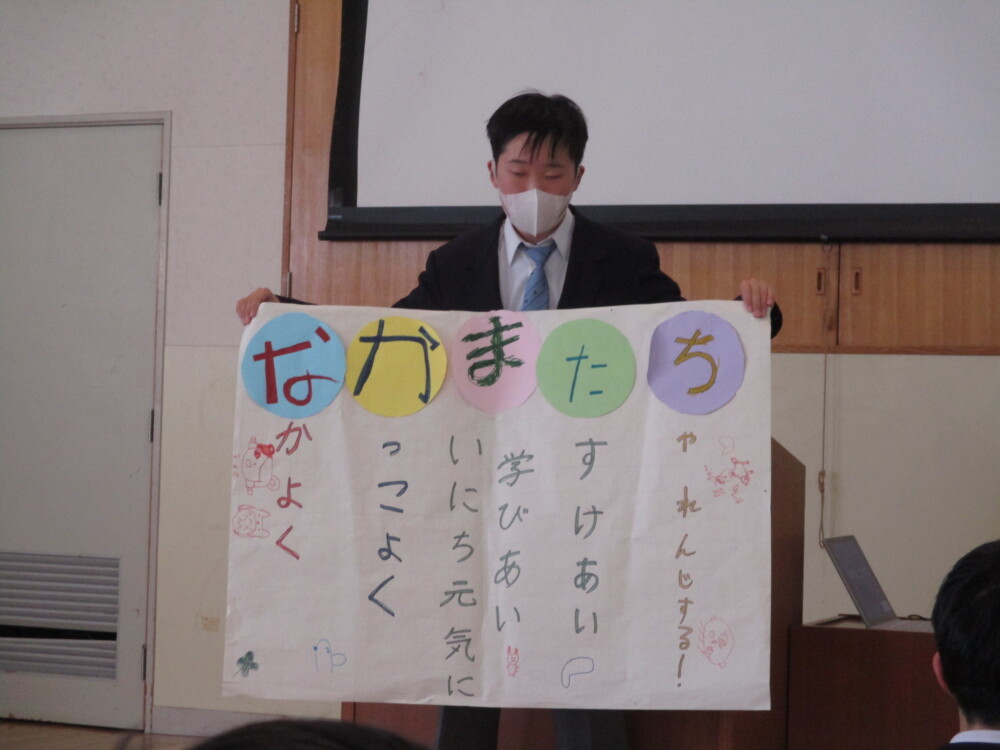 なかまたち
なかよく
かっこよく
まいにち元気に
学びあい
たすけあい
ちゃれんじする!